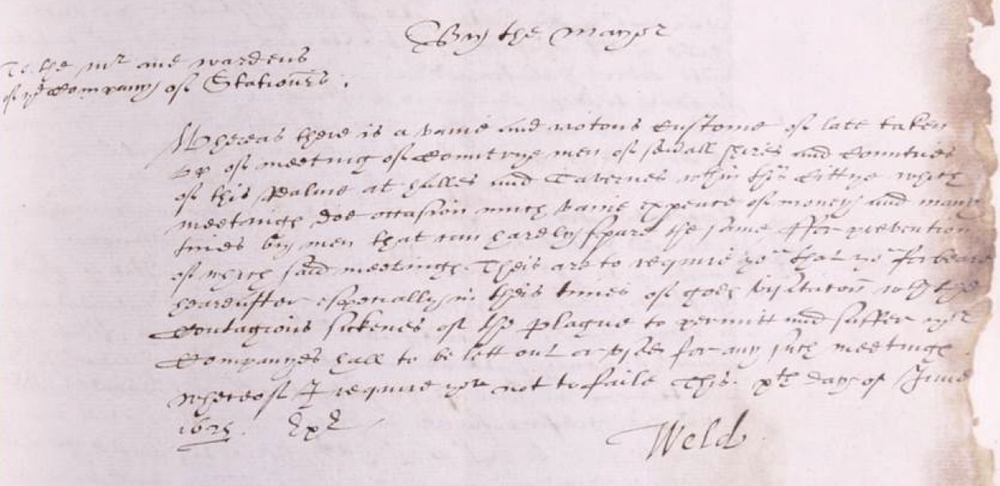 By the Mayor
To the Mr and wardens
of ye Company of Stationrs.
Whereas there is a vaine and riotous Custome of late taken
up of meeting of Countrye men of sevall shires and Counties
of this Realme at halles and Tavernes wthin this Cittye which
meetings doe occasion much vaine expence of money and many
times by men that can hardly spare the same ffor prevention
of which said meetings Theis are to require you that ye forbeare
heareafter especially in theis times of gods visitatōn wth the
Contagious sicknes of the plague to permitt and suffer yor
Companyes hall to be lett out or used for any such meetings
whereof I require you not to faile This xth day of June
1625. Expr
Weld